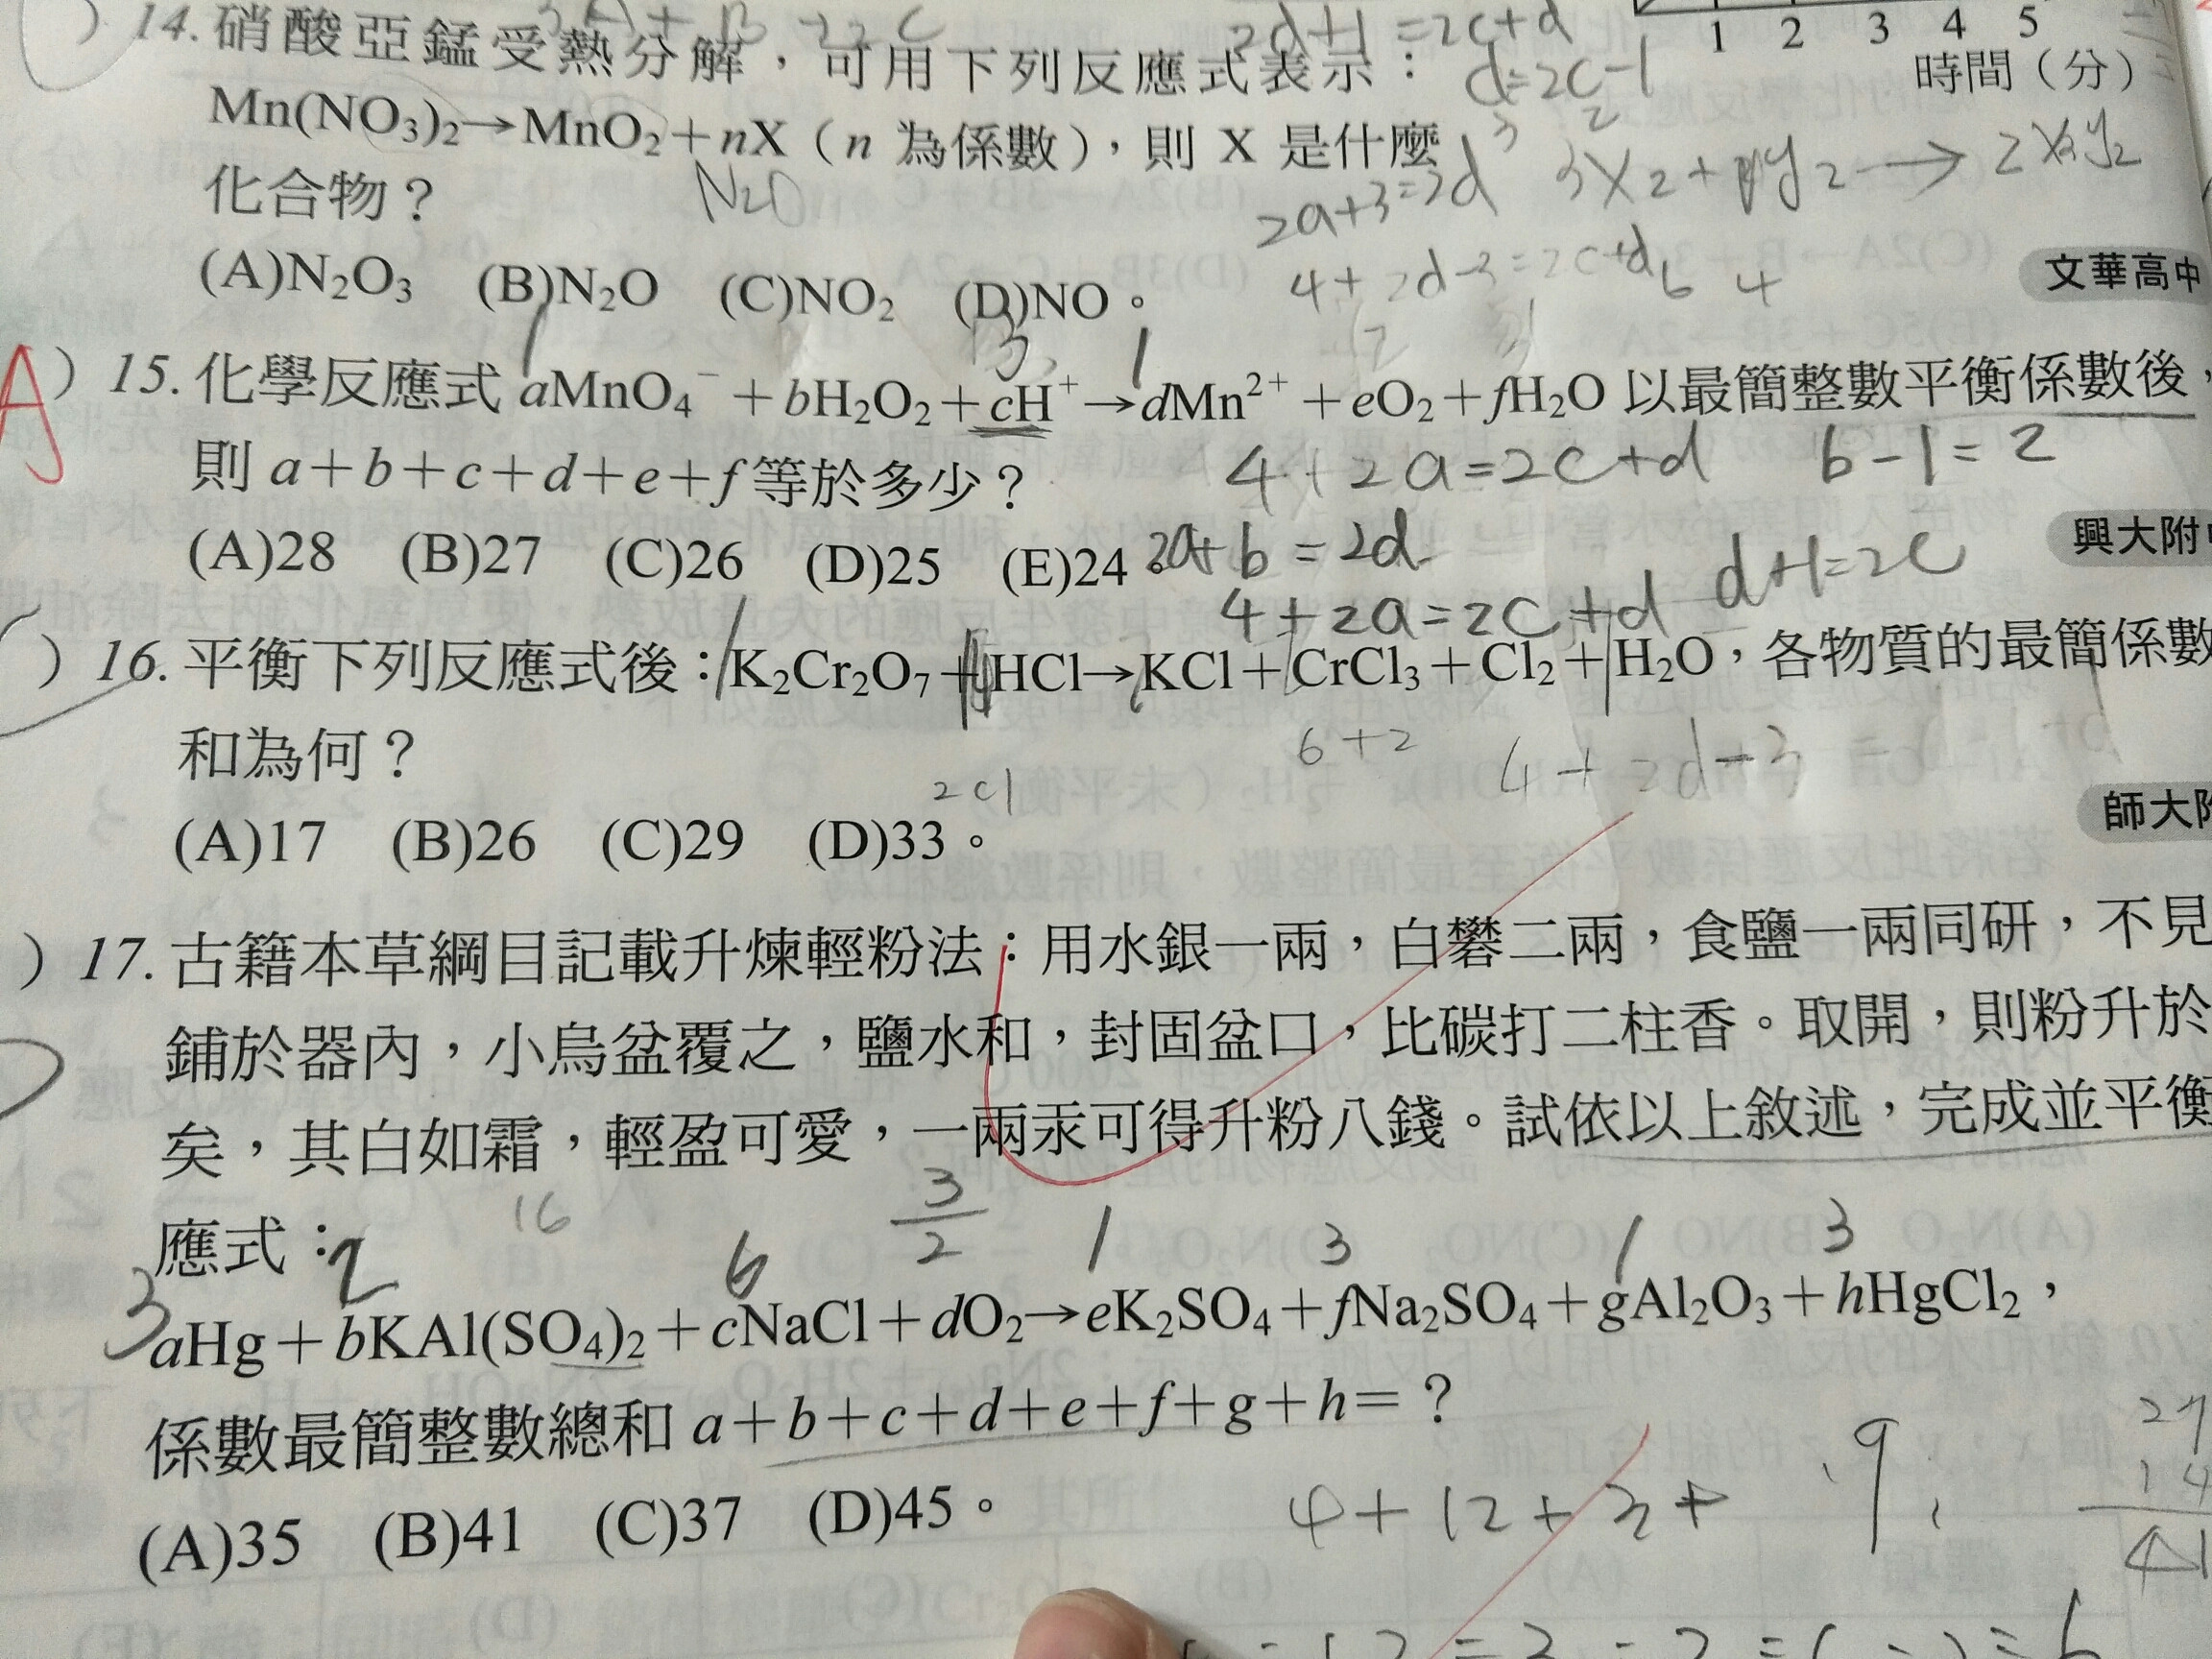 1 2 3 4 5
時間（分）
2d+1=2c+d
d=2c-1
14. 硝酸亞錳受熱分解，可用下列反應式表示：
Mn(NO₃)₂→MnO₂+nX（n 為係數），則 X 是什麼
化合物？
N₂O
2a+3=2d
4+2d-3=2c+d
(A)N₂O₃ (B)N₂O (C)NO₂ (D)NO。
文華高中
A
1 3 1
）15. 化學反應式 aMnO₄⁻+bH₂O₂+cH⁺→dMn²⁺+eO₂+fH₂O 以最簡整數平衡係數後，
則 a+b+c+d+e+f 等於多少？
4+2a=2c+d
6-1=2
(A)28 (B)27 (C)26 (D)25 (E)24。
興大附
2a+b=2d
d+1=2c
4+2a=2c+d
）16. 平衡下列反應式後：K₂Cr₂O₇+HCl→KCl+CrCl₃+Cl₂+H₂O，各物質的最簡係數
和為何？
6+2
4+2d-3=
2Cl
師大附
(A)17 (B)26 (C)29 (D)33。
）17. 古籍本草綱目記載升煉輕粉法：用水銀一兩，白礬二兩，食鹽一兩同研，不見
鋪於器內，小烏盆覆之，鹽水和，封固盆口，比碳打二柱香。取開，則粉升於
矣，其白如霜，輕盈可愛，一兩汞可得升粉八錢。試依以上敘述，完成並平衡
應式：
16
3 2 6 3/2 1 3 1 3
aHg+bKAl(SO₄)₂+cNaCl+dO₂→eK₂SO₄+fNa₂SO₄+gAl₂O₃+hHgCl₂，
係數最簡整數總和 a+b+c+d+e+f+g+h=？
(A)35 (B)41 (C)37 (D)45。
4+12+3+
9
27
14
41